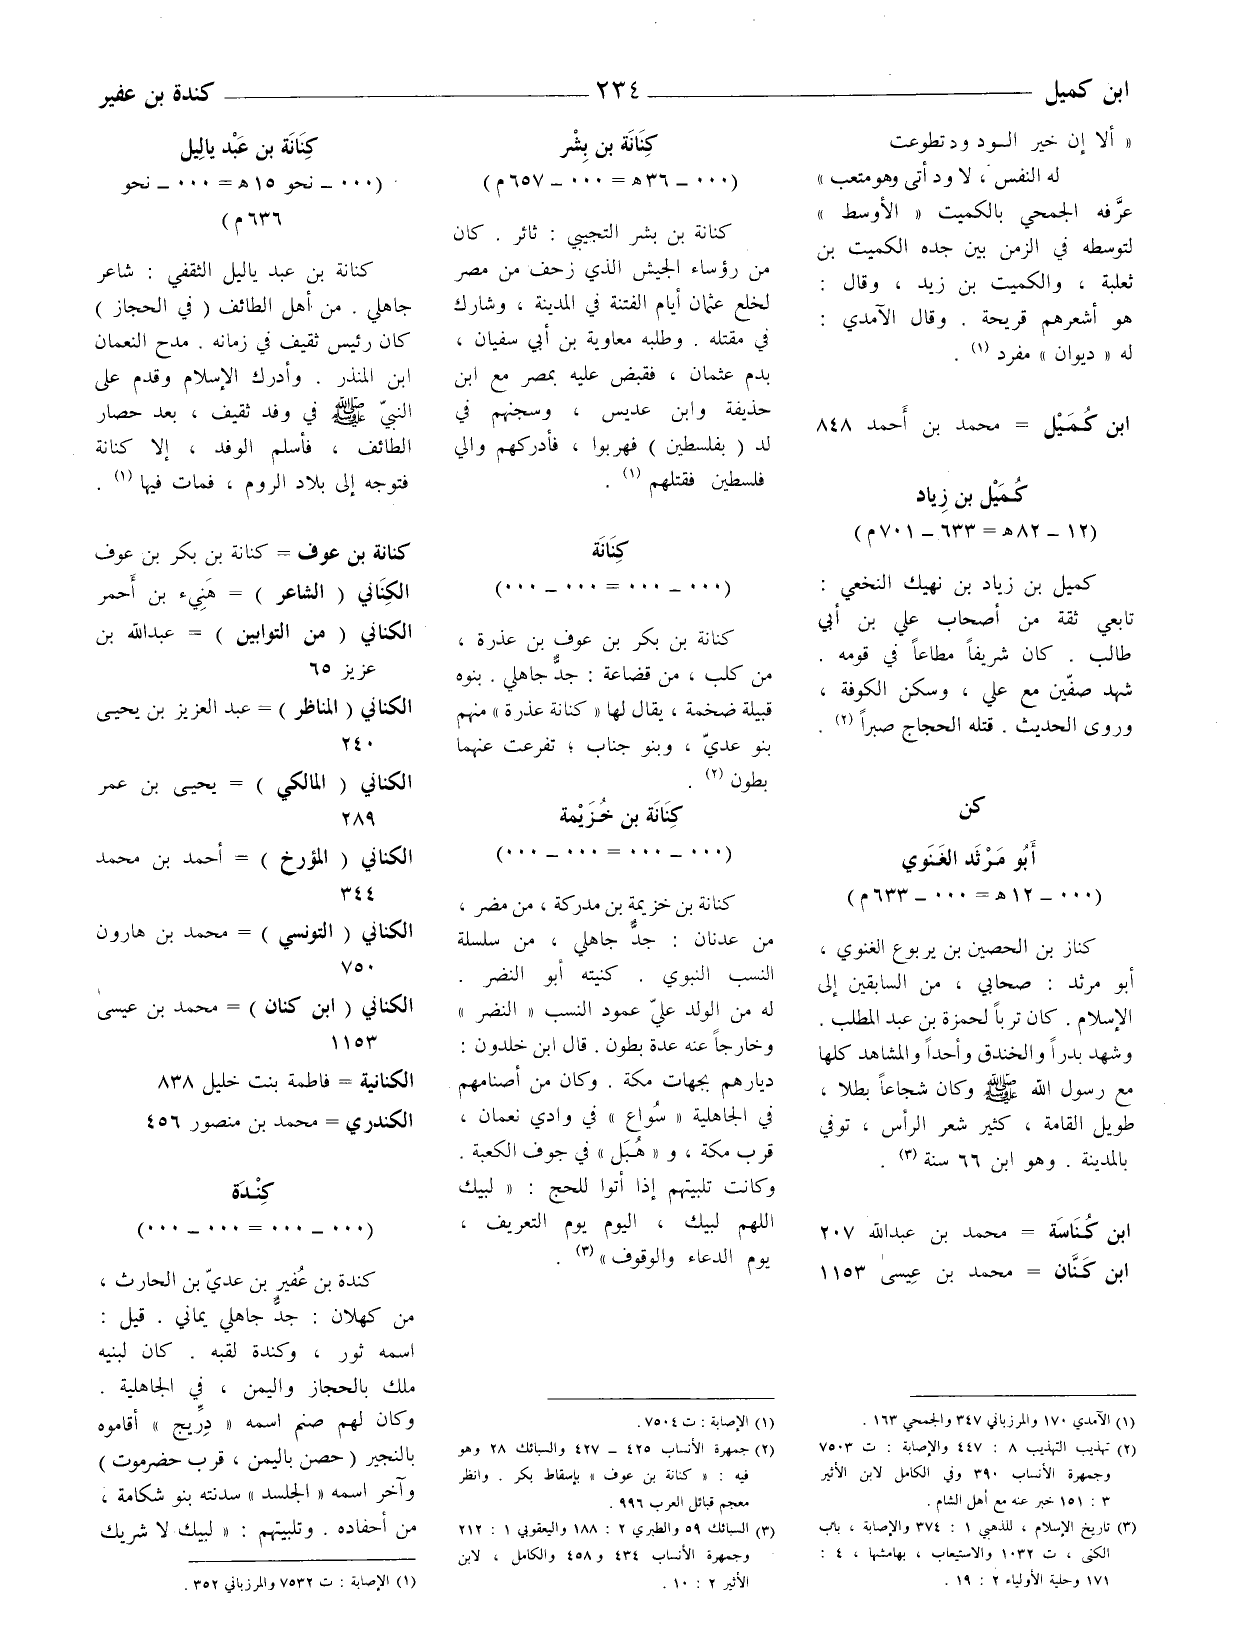 ابن كميل ٢٣٤ كندة بن عفير
« ألا إن خير الـود ود تطوعت
له النفس ، لا ود أتى وهو متعب »
عرَّفه الجمحي بالكميت « الأوسط »
لتوسطه في الزمن بين جده الكميت بن
ثعلبة ، والكميت بن زيد ، وقال :
هو أشعرهم قريحة . وقال الآمدي :
له « ديوان » مفرد (١) .
ابن كُمَيْل = محمد بن أَحمد ٨٤٨
كُمَيْل بن زِياد
(١٢ – ٨٢ه = ٦٣٣ – ٧٠١م)
كميل بن زياد بن نهيك النخعي :
تابعي ثقة من أصحاب علي بن أبي
طالب . كان شريفاً مطاعاً في قومه .
شهد صفّين مع علي ، وسكن الكوفة ،
وروى الحديث . قتله الحجاج صبراً (٢) .
كن
أَبُو مَرْثَد الغَنَوي
(٠٠٠ – ١٢ه = ٠٠٠ – ٦٣٣م)
كناز بن الحصين بن يربوع الغنوي ،
أبو مرثد : صحابي ، من السابقين إلى
الإسلام . كان ترباً لحمزة بن عبد المطلب .
وشهد بدراً والخندق وأحداً والمشاهد كلها
مع رسول الله ﷺ وكان شجاعاً بطلا ،
طويل القامة ، كثير شعر الرأس ، توفي
بالمدينة . وهو ابن ٦٦ سنة (٣) .
ابن كُنَاسَة = محمد بن عبدالله ٢٠٧
ابن كَنَّان = محمد بن عِيسىٰ ١١٥٣
(١) الآمدي ١٧٠ والمرزباني ٣٤٧ والجمحي ١٦٣ .
(٢) تهذيب التهذيب ٨ : ٤٤٧ والإصابة : ت ٧٥٠٣
وجمهرة الأنساب ٣٩٠ وفي الكامل لابن الأثير
٣ : ١٥١ خبر عنه مع أهل الشام .
(٣) تاريخ الإسلام ، للذهبي ١ : ٣٧٤ والإصابة ، باب
الكنى ، ت ١٠٣٢ والاستيعاب ، بهامشها ، ٤ :
١٧١ وحلية الأولياء ٢ : ١٩ .
كِنَانَة بن بِشْر
(٠٠٠ – ٣٦ه = ٠٠٠ – ٦٥٧م)
كنانة بن بشر التجيبي : ثائر . كان
من رؤساء الجيش الذي زحف من مصر
لخلع عثمان أيام الفتنة في المدينة ، وشارك
في مقتله . وطلبه معاوية بن أبي سفيان ،
بدم عثمان ، فقبض عليه بمصر مع ابن
حذيفة وابن عديس ، وسجنهم في
لد ( بفلسطين ) فهربوا ، فأدركهم والي
فلسطين فقتلهم (١) .
كِنَانَة
(٠٠٠ – ٠٠٠ = ٠٠٠ – ٠٠٠)
كنانة بن بكر بن عوف بن عذرة ،
من كلب ، من قضاعة : جدٌّ جاهلي . بنوه
قبيلة ضخمة ، يقال لها « كنانة عذرة » منهم
بنو عديّ ، وبنو جناب ؛ تفرعت عنهما
بطون (٢) .
كِنَانَة بن خُزَيْمة
(٠٠٠ – ٠٠٠ = ٠٠٠ – ٠٠٠)
كنانة بن خزيمة بن مدركة ، من مضر ،
من عدنان : جدٌّ جاهلي ، من سلسلة
النسب النبوي . كنيته أبو النضر .
له من الولد عليّ عمود النسب « النضر »
وخارجاً عنه عدة بطون . قال ابن خلدون :
ديارهم بجهات مكة . وكان من أصنامهم
في الجاهلية « سُواع » في وادي نعمان ،
قرب مكة ، و « هُبَل » في جوف الكعبة .
وكانت تلبيتهم إذا أتوا للحج : « لبيك
اللهم لبيك ، اليوم يوم التعريف ،
يوم الدعاء والوقوف » (٣) .
(١) الإصابة : ت ٧٥٠٤ .
(٢) جمهرة الأنساب ٤٢٥ – ٤٢٧ والسبائك ٢٨ وهو
فيه : « كنانة بن عوف » بإسقاط بكر . وانظر
معجم قبائل العرب ٩٩٦ .
(٣) السبائك ٥٩ والطبري ٢ : ١٨٨ واليعقوبي ١ : ٢١٢
وجمهرة الأنساب ٤٣٤ و ٤٥٨ والكامل ، لابن
الأثير ٢ : ١٠ .
كِنَانَة بن عَبْد يالِيل
(٠٠٠ – نحو ١٥ه = ٠٠٠ – نحو
٦٣٦م)
كنانة بن عبد ياليل الثقفي : شاعر
جاهلي . من أهل الطائف ( في الحجاز )
كان رئيس ثقيف في زمانه . مدح النعمان
ابن المنذر . وأدرك الإسلام وقدم على
النبيّ ﷺ في وفد ثقيف ، بعد حصار
الطائف ، فأسلم الوفد ، إلا كنانة
فتوجه إلى بلاد الروم ، فمات فيها (١) .
كنانة بن عوف = كنانة بن بكر بن عوف
الكِنَاني ( الشاعر ) = هَنِيء بن أَحمر
الكناني ( من التوابين ) = عبدالله بن
عزيز ٦٥
الكناني ( المناظر ) = عبد العزيز بن يحيى
٢٤٠
الكناني ( المالكي ) = يحيى بن عمر
٢٨٩
الكناني ( المؤرخ ) = أحمد بن محمد
٣٤٤
الكناني ( التونسي ) = محمد بن هارون
٧٥٠
الكناني ( ابن كنان ) = محمد بن عيسىٰ
١١٥٣
الكنانية = فاطمة بنت خليل ٨٣٨
الكندري = محمد بن منصور ٤٥٦
كِنْدَة
(٠٠٠ – ٠٠٠ = ٠٠٠ – ٠٠٠)
كندة بن عُفير بن عديّ بن الحارث ،
من كهلان : جدٌّ جاهلي يماني . قيل :
اسمه ثور ، وكندة لقبه . كان لبنيه
ملك بالحجاز واليمن ، في الجاهلية .
وكان لهم صنم اسمه « ذريح » أقاموه
بالنجير (حصن باليمن ، قرب حضرموت )
وآخر اسمه « الجلسد » سدنته بنو شكامة ،
من أحفاده . وتلبيتهم : « لبيك لا شريك
(١) الإصابة : ت ٧٥٣٢ والمرزباني ٣٥٢ .